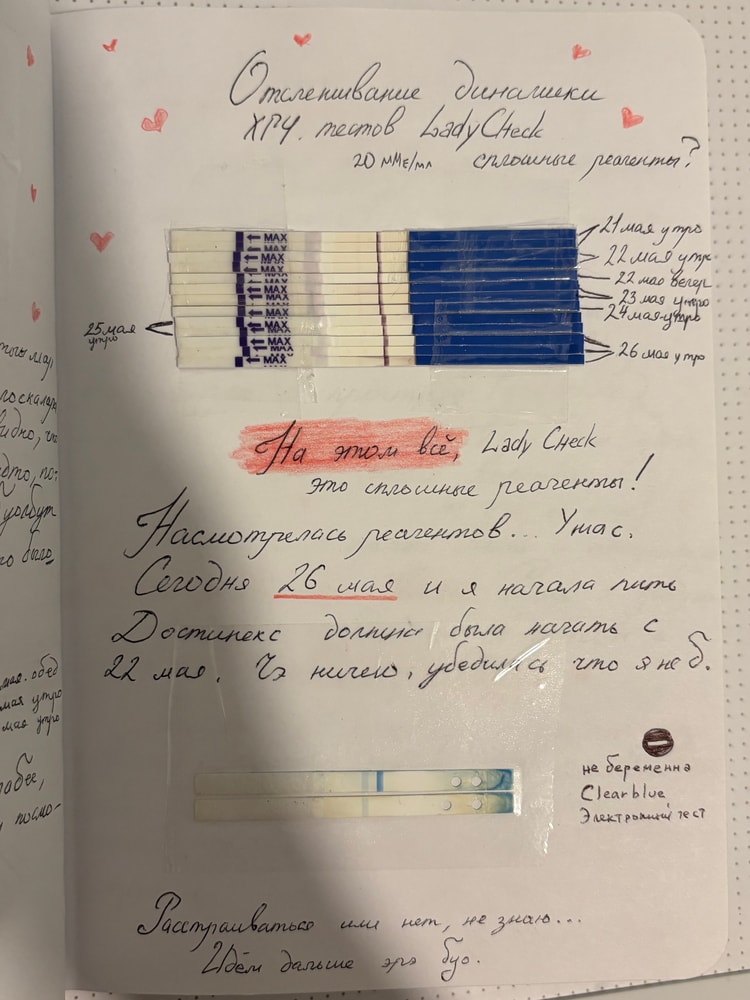 Отслеживание динамики
ХГЧ. тестов LadyCheck
20 мМЕ/мл сплошные реагенты?
21 мая утро
22 мая утр
22 мая вечер
23 мая утро
24 мая утро
25 мая
утро
26 мая утро
MAX
MAX
MAX
MAX
MAX
MAX
MAX
MAX
MAX
На этом всё, Lady Check
это сплошные реагенты!
Насмотрелась реагентов... Ужас.
Сегодня 26 мая и я начала пить
Достинекс должна была начать с
22 мая. Но ничего, убедилась что я не б.
не беременна
Clearblue
Электронный тест
Расстраиваться или нет, не знаю...
Идём дальше